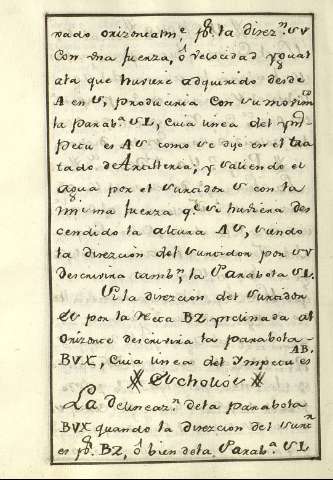 nado orizontalm.e p.r la direz.n SV
Con una fuerza, ô velocidad ygual
ala que huviere adquirido desde
A en S, produciria Con su movim.to
la parab.a SL, Cuia linea del ym-
petu es AS como se dijo en el tra
tado de Artilleria; y saliendo el
agua por el surtidor S con la
misma fuerza q.e si huviera des
cendido la altura AS, siendo
la direzcion del surtidor por SV
descrivira tamb.n la Parabola SL.
Si la direzcion del surtidor
es por la recta BZ yndinada al
orizonte descrivira la parabola
BVX, Cuia linea del Ympetu es AB.
Scholio
La delineaz.n de la parabola
BVX quando la direzcion del surt.r
es p.r BZ, ô bien de la Parab.a SL